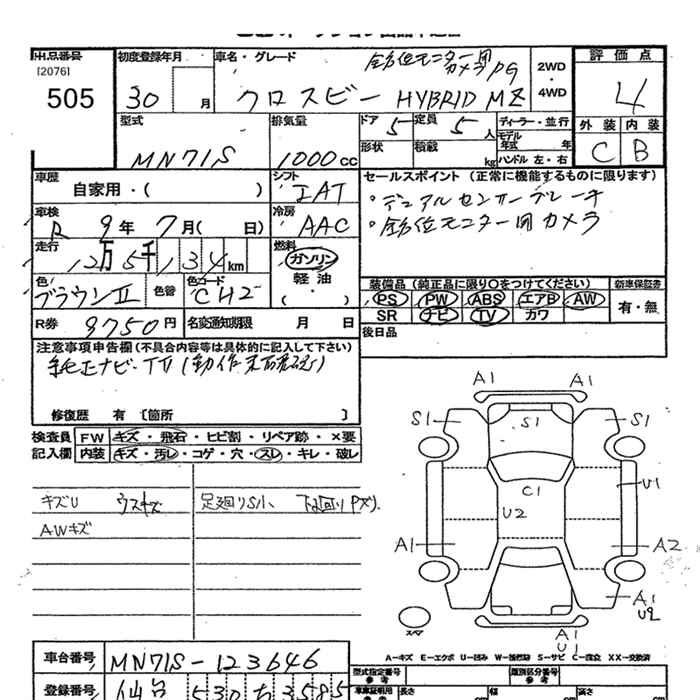 出品番号
[2076]
505
初度登録年月
30 月
車名・グレード
全方位モニター用
カメラPG
クロスビー HYBRID MZ
2WD
・
4WD
評価点
4
外装 内装
C B
型式
MN71S
排気量
1000cc
ドア 5
形状
定員 5 人
積載 kg
ディーラー・並行
モデル
年式 年
ハンドル 左・右
車歴
自家用・( )
シフト
IAT
車検
R 9年 7月( 日)
冷房
AAC
走行
12万5千134km
燃料
ガソリン
軽油
( ・ )
色
ブラウンII
色替
色コード
CH2
R券 9750円
名変通知期限 月 日
セールスポイント (正常に機能するものに限ります)
・デュアルセンサーブレーキ
・全方位モニター用カメラ
装備品 (純正品に限り○をつけてください)
PS PW ABS エアB AW
SR ナビ TV カワ
新車保証書
有・無
後日品
注意事項申告欄(不具合内容等は具体的に記入して下さい)
純正ナビ・TV(動作未確認)
修復歴 有 [箇所 ]
検査員
記入欄
FW キズ・飛石・ヒビ割・リペア跡・×要
内装 キズ・汚レ・コゲ・穴・スレ・キレ・破レ
キズU ウスキズ
足廻りS小、下廻りPズ).
AWキズ
A1 A1
S1 S1 S1
C1
U2
U1
A1 A2
A1
U2
スペア
A1
U1
A-キズ E-エクボ U-凹み W-補修跡 S-サビ C-腐食 XX-交換済
車台番号 MN71S-123646
登録番号 仙台 530 ち 3585
型式指定番号
類別区分番号
車庫証明用
参考
長さ 幅 高さ